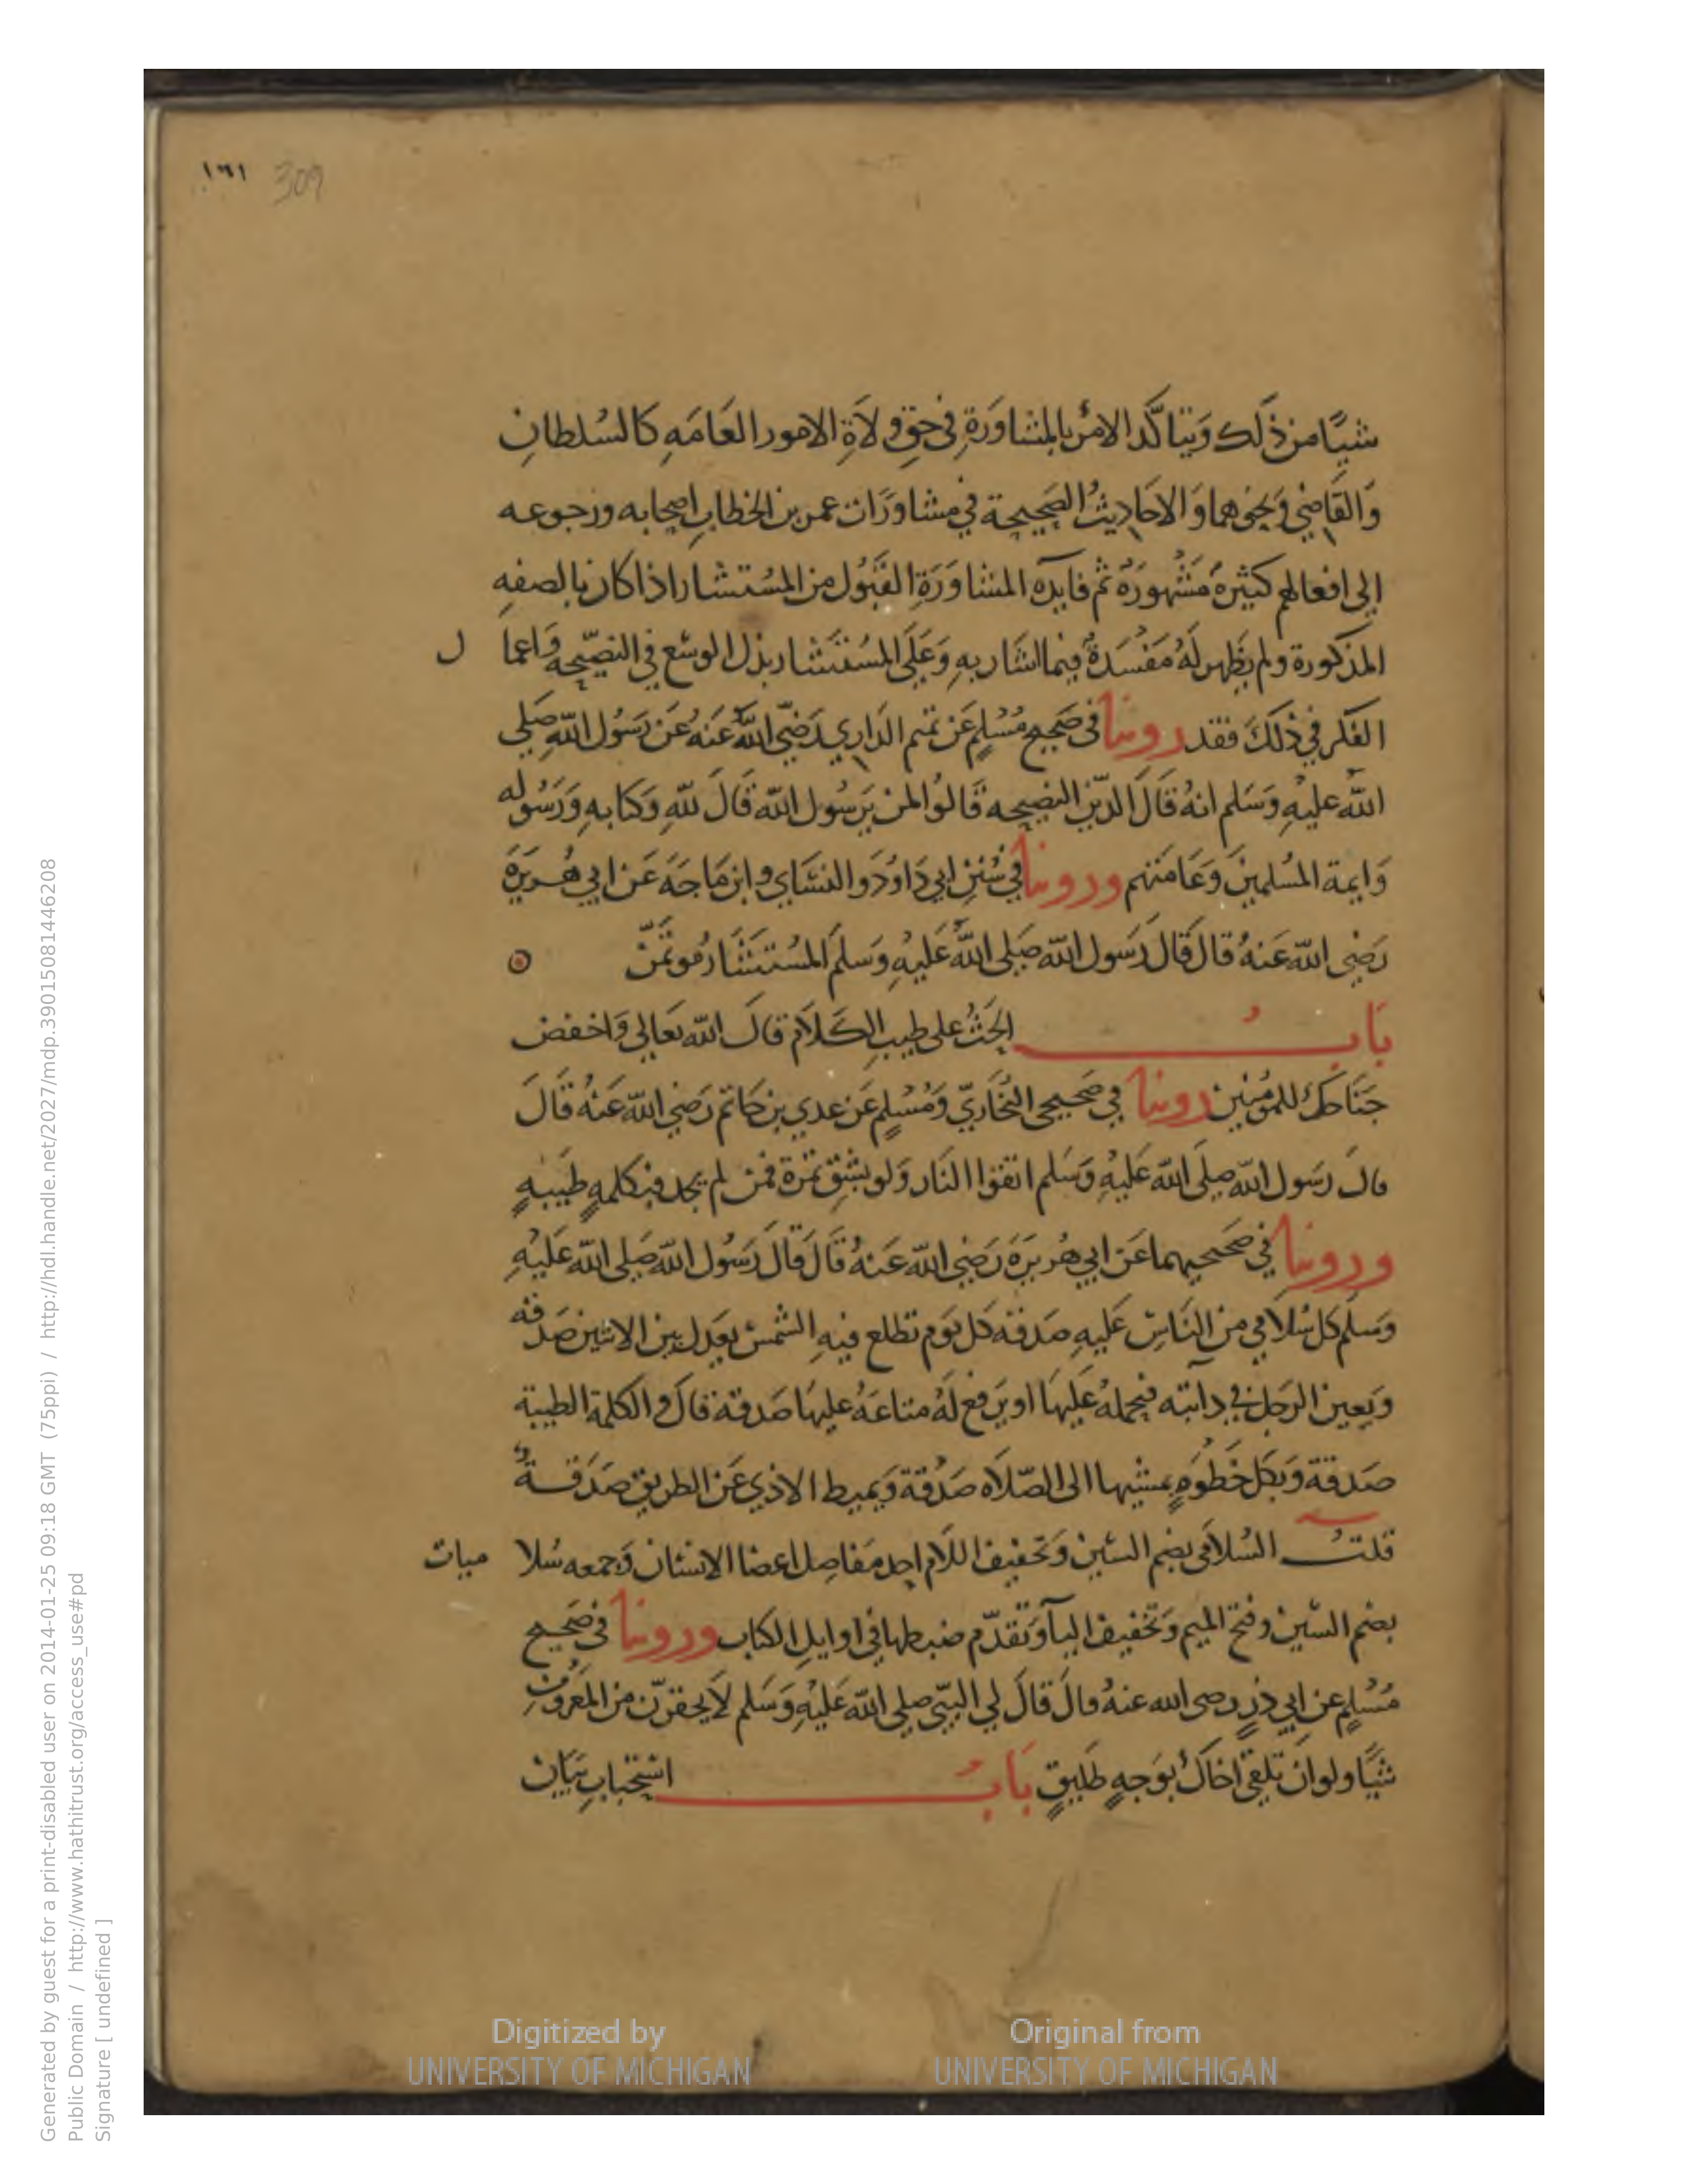 ١٦١ 309
شيًا من ذَلك وَيتاكَّد الامرُ بالمشاوَرَةِ في حقِّ ولَاةِ الامور العَامَه كالسُلطانِ
وَالقَاضِي وَنحوهما وَالاحَاديثُ الصَحِيحة في مشاوَرَات عمر بن الخطابِ اصحابه ورجوعه
الى افعالهم كثيرةٌ مَشْهورَةٌ ثم فايدة المشاوَرَةِ القَبُول من المسُتشار اذا كان بالصفهِ
المذكورة ولم يظهر لَهُ مَفْسَدةٌ فيما اشَار بهِ وَعَلَى المسُتَشار بذل الوسْع في النصِّيحه وَاعما ل
الفكر في ذلكَ فقد روينا في صَحيح مُسْلمٍ عَن تميم الدَاري رَضيَ اللهُ عَنهُ عَن رَسُول اللهِ صَلى
الله عليْهِ وَسَلم انهُ قالَ الدِّين النصِيحه قَالوُا لمن يَرسُول الله قَالَ للهِ وَكتابهِ وَرَسُوله
وَايمة المسُلمينَ وَعَامَتهم وروينا في سُننِ ابي دَاوُدَ والنسَاي وابن مَاجَهَ عَن ابي هُريرَة
رَضِي الله عَنهُ قالَ قَالَ رَسَول الله صَلى اللهُ عَليهِ وَسَلمَ المسُتَشَارُ موتمَنٌ
بَابُ الحَثُ على طيبِ الكَلاَم قالَ الله تعَالى وَاخفض
جَنَاحَك للموُمنين روينا في صَحيحي البُخَاريّ وَمُسْلمٍ عَن عدي بن حَاتم رَضِي الله عَنهُ قَالَ
قالَ رسَول الله صلَى الله عَليهِ وَسَلم اتقوا النَار وَلو بشقِ تمرَة فمن لم يجد فبكلمهٍ طَيبهٍ
وروينا في صَحيحيهما عَن ابي هُريرَةَ رَضِي الله عَنهُ قَالَ قالَ رَسُول الله صَلى الله عَليْهِ
وَسلم كل سُلامي من النَاسِ عَليهِ صَدقه كل يوَم تطلع فيهِ الشمسُ يعَدل بين الاثنين صَدقه
وَيعين الرَجل في دابته فيحمله عَليهَا او يَرفع لَهُ متاعَهُ عليهَا صَدقة قالَ والكلمة الطيبة
صَدقة وَبكل خطَوُهٍ يمشيها الى الصّلاَة صَدقة وَيميط الاذي عَن الطريق صَدَقةٌ
قلتُ السُلامَى بضم السّين وَتخفيف اللام احد مَفاصِل اعضا الانسَان وَجمعه سُلا ميات
بضم السّين وفتح الميم وَتخفيف اليآ وَتقدّم ضبطها في اوايلِ الكتاب وروينا في صَحيح
مُسْلمٍ عن ابي ذرٍ رضى الله عنهُ قالَ قالَ لي النبيّ صلى الله عَليْهِ وَسَلم لاَ يحقرنّ من المعَرُوفِ
شيًا ولو ان تلقى اخَاكَ بوَجهٍ طَليقٍ بَابُ استحبابِ بَيَان
Generated by guest for a print-disabled user on 2014-01-25 09:18 GMT (75ppi) / http://hdl.handle.net/2027/mdp.39015081446208
Public Domain / http://www.hathitrust.org/access_use#pd
Signature [ undefined ]
Digitized by UNIVERSITY OF MICHIGAN
Original from UNIVERSITY OF MICHIGAN